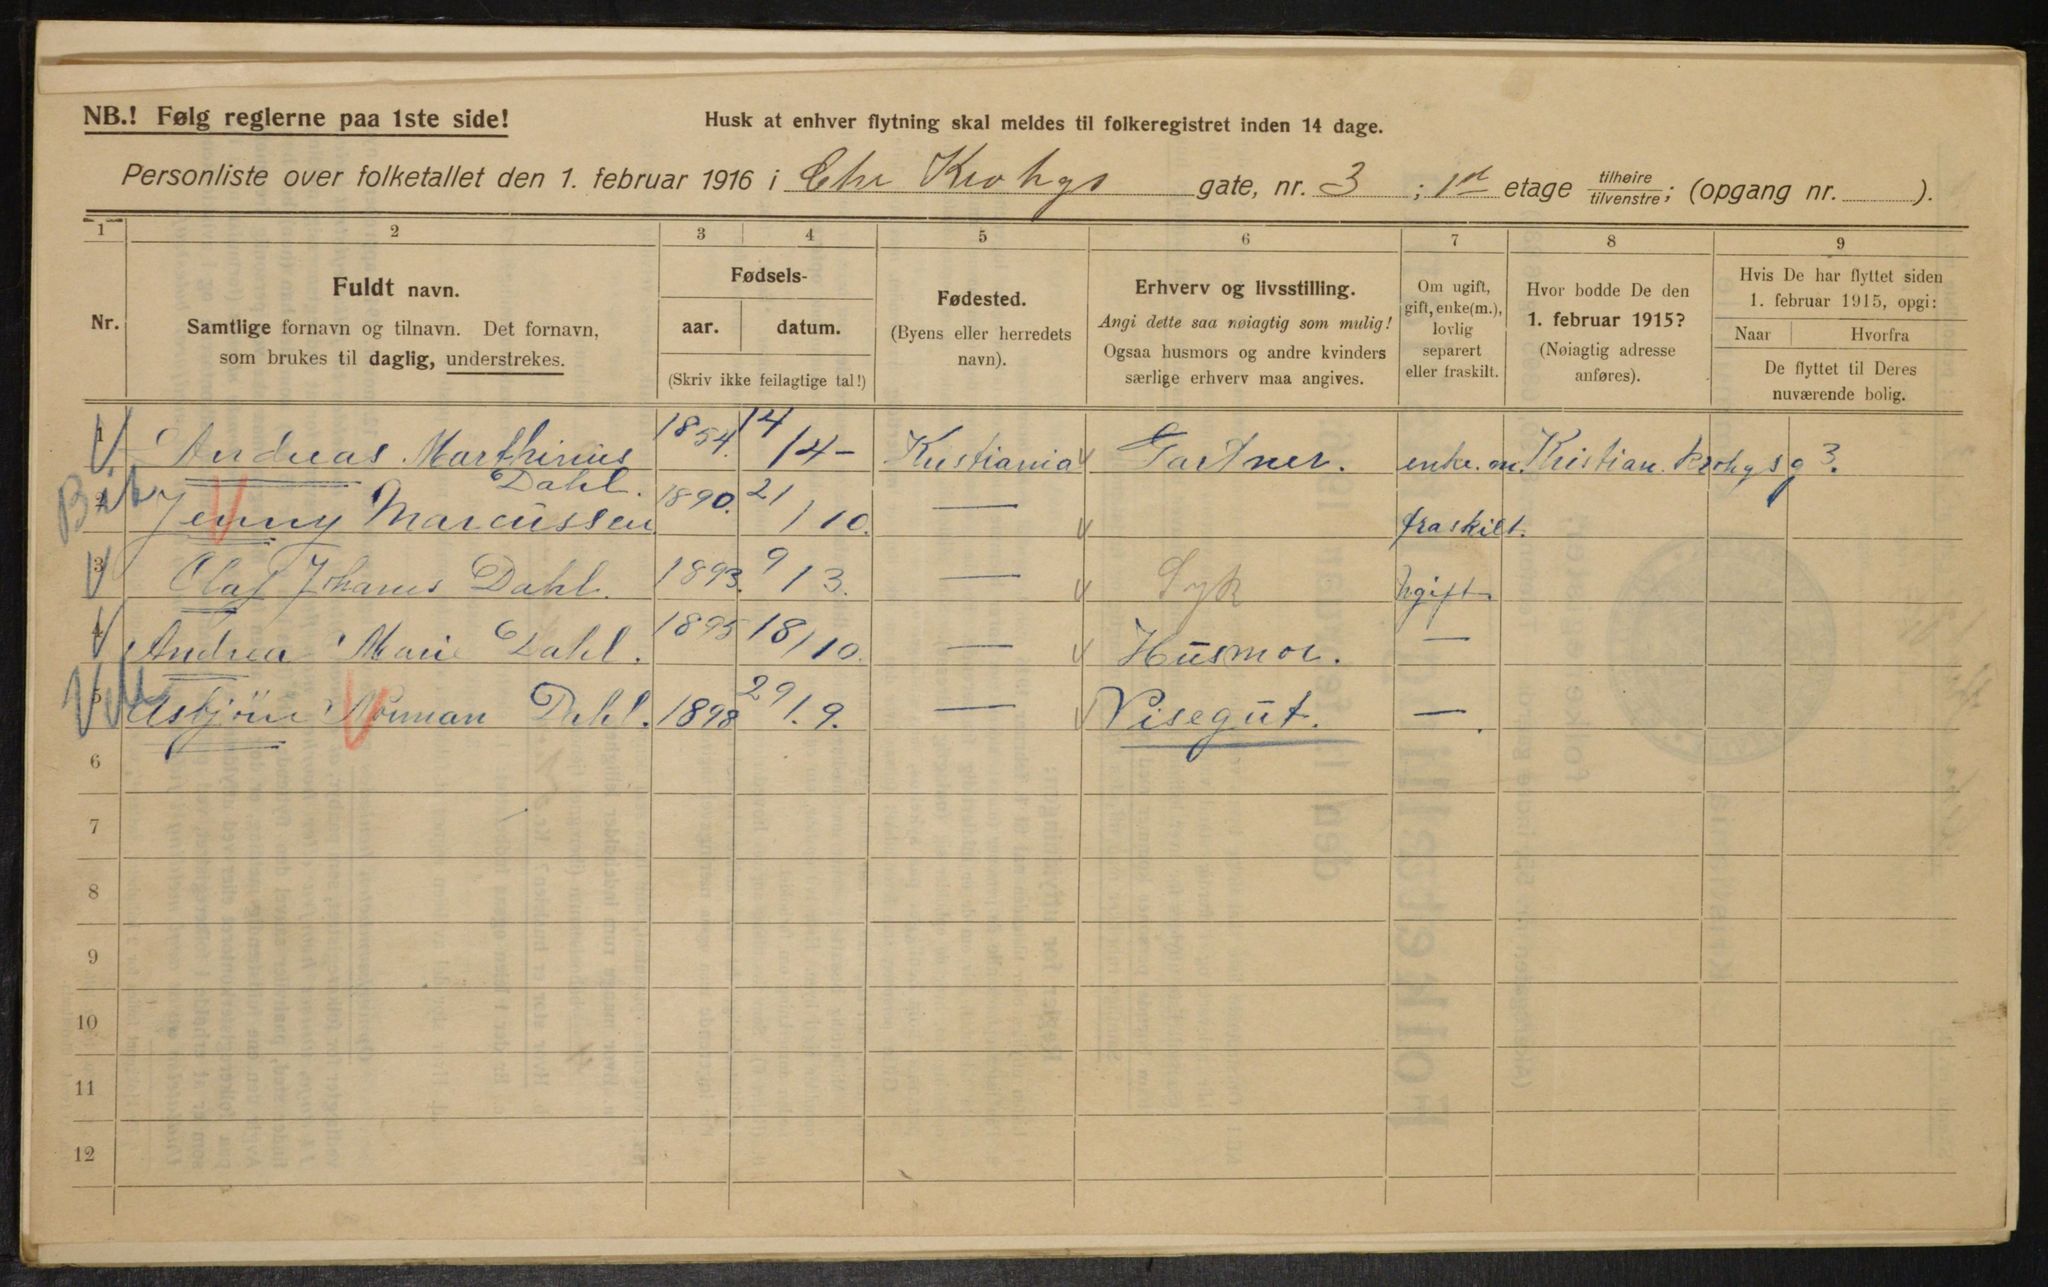 NB.! Følg reglerne paa 1ste side!
Husk at enhver flytning skal meldes til folkeregistret inden 14 dage.
Personliste over folketallet den 1. februar 1916 i Chr Krohgs gate, nr. 3 ; 1st etage tilhøire/tilvenstre; (opgang nr. ).
1 2 3 4 5 6 7 8 9
Nr.
Fuldt navn.
Samtlige fornavn og tilnavn. Det fornavn,
som brukes til daglig, understrekes.
Fødsels-
aar. datum.
(Skriv ikke feilagtige tal!)
Fødested.
(Byens eller herredets
navn).
Erhverv og livsstilling.
Angi dette saa nøiagtig som mulig!
Ogsaa husmors og andre kvinders
særlige erhverv maa angives.
Om ugift,
gift, enke(m.),
lovlig
separert
eller fraskilt.
Hvor bodde De den
1. februar 1915?
(Nøiagtig adresse
anføres).
Hvis De har flyttet siden
1. februar 1915, opgi:
Naar Hvorfra
De flyttet til Deres
nuværende bolig.
1 Andreas Marthinius Dahl. 1854. 14/4- Kristiania Gartner. enke.m. Kristian Krohgs g 3.
2 Jenny Marcussen 1890. 21/10. — fraskilt.
3 Olaf Johanes Dahl. 1893. 9/3. — Syk Ugift
4 Andrea Marie Dahl. 1895 18/10. — Husmor. —
5 Asbjörn Norman Dahl. 1898 29/9. — Visegut. —
6
7
8
9
10
11
12